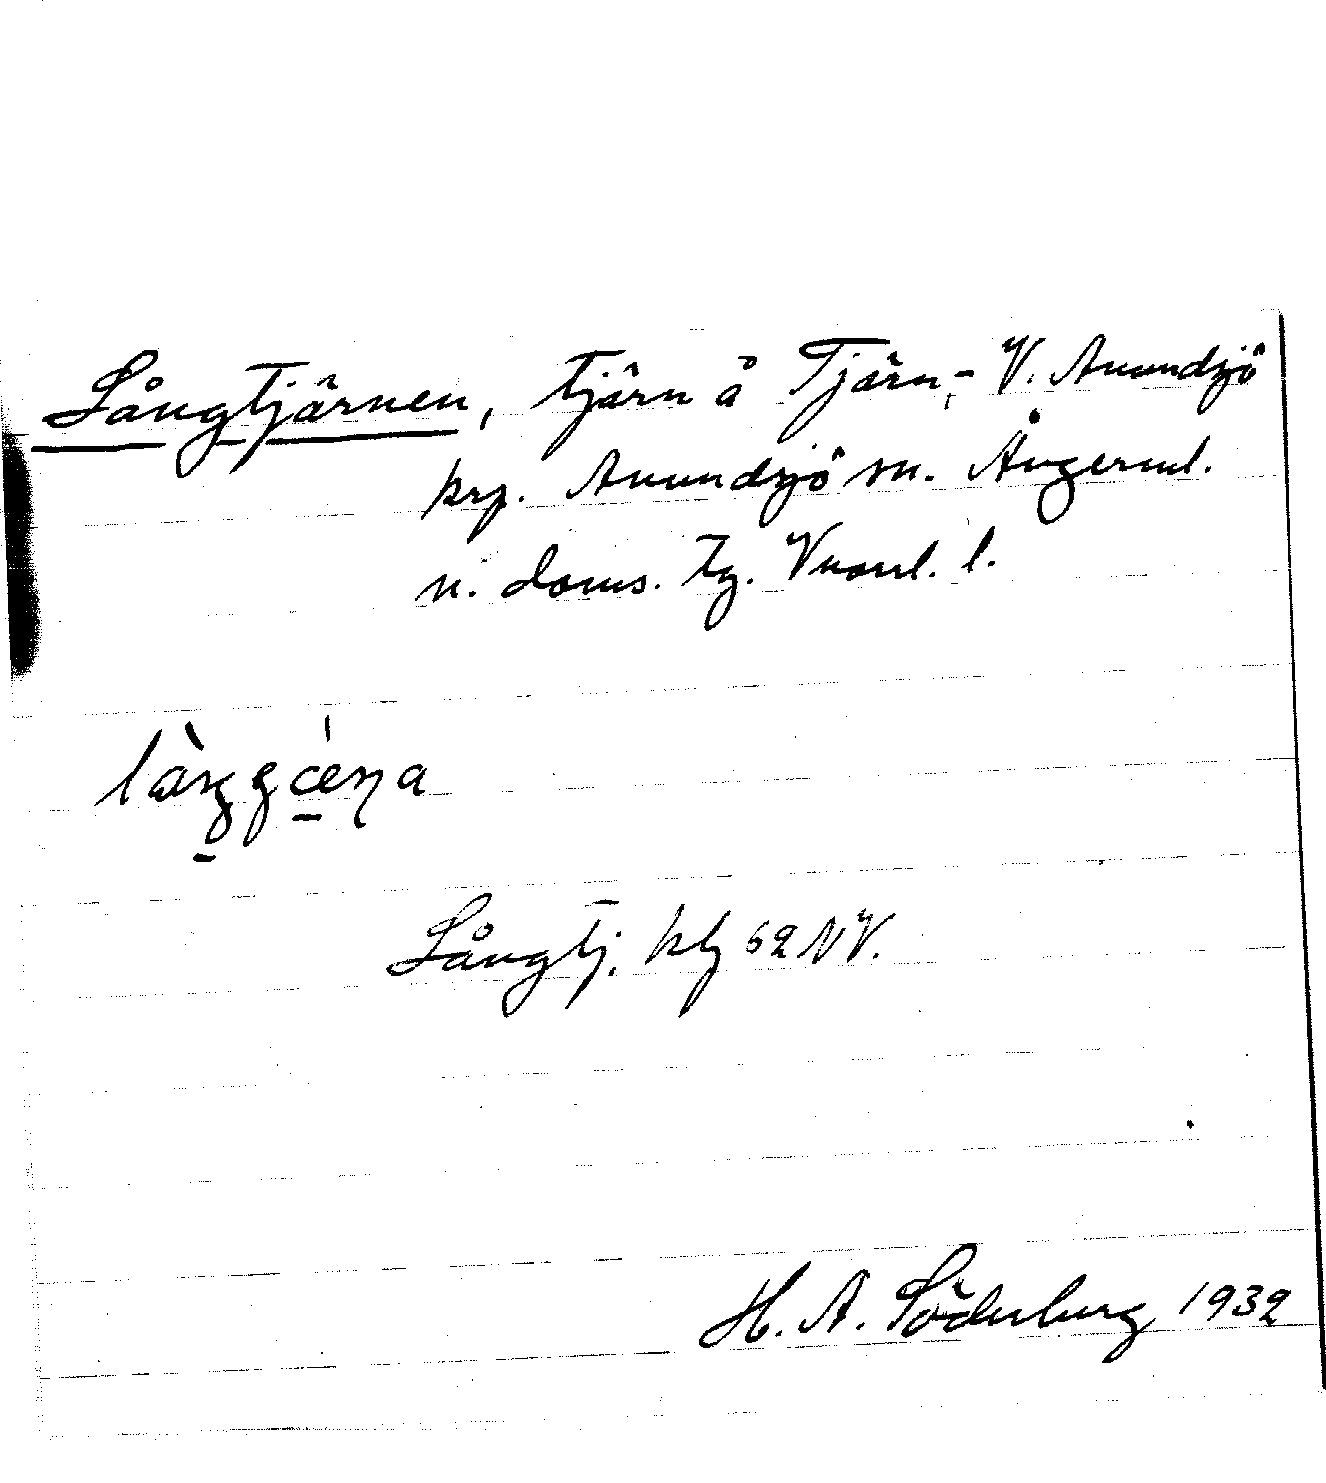 Långtjärnen, tjärn å Tjärn, V. Anundsjö
krp. Anundsjö sn. Ångerml.
n. doms. tg. Vnorrl. l.
Långtj. ktg 62 NV.
H. A. Söderberg 1932